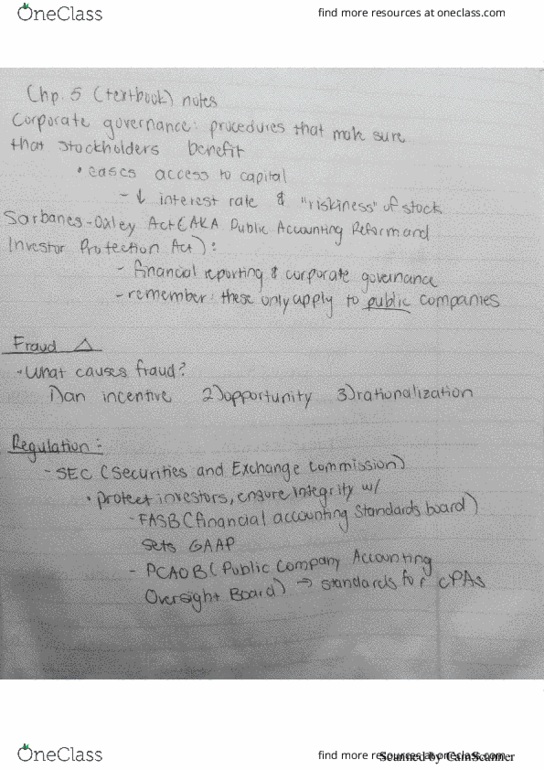 OneClass
find more resources at oneclass.com
Chp. 5 (textbook) notes
Corporate governance: procedures that make sure
that stockholders benefit
• eases access to capital
- ↓ interest rate & "riskiness" of stock
Sarbanes-Oxley Act (AKA Public Accounting Reform and
Investor Protection Act):
- financial reporting & corporate governance
- remember: these only apply to public companies
Fraud △
- What causes fraud?
1) an incentive 2) opportunity 3) rationalization
Regulation:
- SEC (Securities and Exchange Commission)
• protect investors, ensure integrity w/
- FASB (financial accounting standards board)
sets GAAP
- PCAOB (Public Company Accounting
Oversight Board) → standards for CPAs
OneClass
find more resources at oneclass.com
Scanned by CamScanner